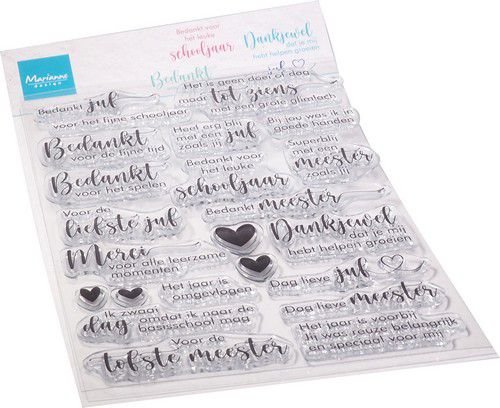 Marianne
design
Bedankt voor
het leuke
schooljaar
Dankjewel
dat je mij
hebt helpen groeien
Bedankt
juf
Bedankt juf
voor het fijne schooljaar
Het is geen doei of dag
maar tot ziens
met een grote glimlach
Bedankt
voor de fijne tijd
Heel erg blij
met een juf
zoals jij
Bij jou was ik in
goede handen
Bedankt
voor het spelen
Bedankt voor
het leuke
schooljaar
Superblij
met een
meester
zoals jij
Voor de
liefste juf
Bedankt meester
Merci
voor alle leerzame
momenten
Dankjewel
dat je mij
hebt helpen groeien
Het jaar is
omgevlogen
Dag lieve juf
Ik zwaai
dag omdat ik naar de
basisschool mag
Dag lieve meester
Voor de
tofste meester
Het jaar is voorbij
Jij was reuze belangrijk
en speciaal voor mij